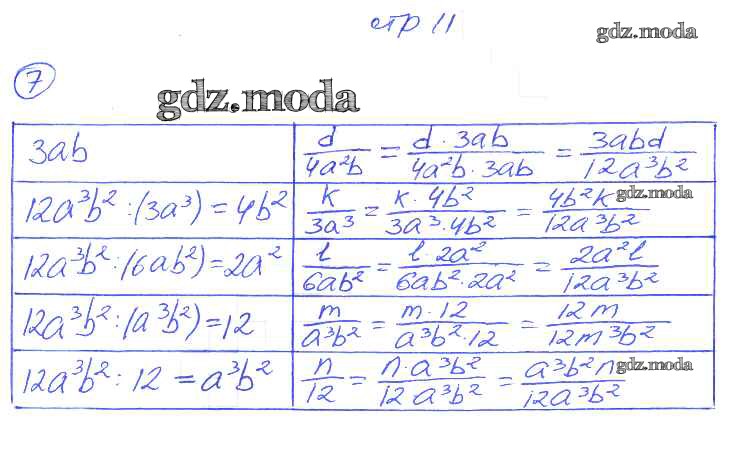 стр 11
gdz.moda
7
gdz.moda
3ab | d/4a²b = d·3ab/4a²b·3ab = 3abd/12a³b²
12a³b² : (3a³) = 4b² | k/3a³ = k·4b²/3a³·4b² = 4b²k/12a³b² gdz.moda
12a³b² : (6ab²) = 2a² | l/6ab² = l·2a²/6ab²·2a² = 2a²l/12a³b²
12a³b² : (a³b²) = 12 | m/a³b² = m·12/a³b²·12 = 12m/12m³b²
12a³b² : 12 = a³b² | n/12 = n·a³b²/12 a³b² = a³b²n/12a³b² gdz.moda